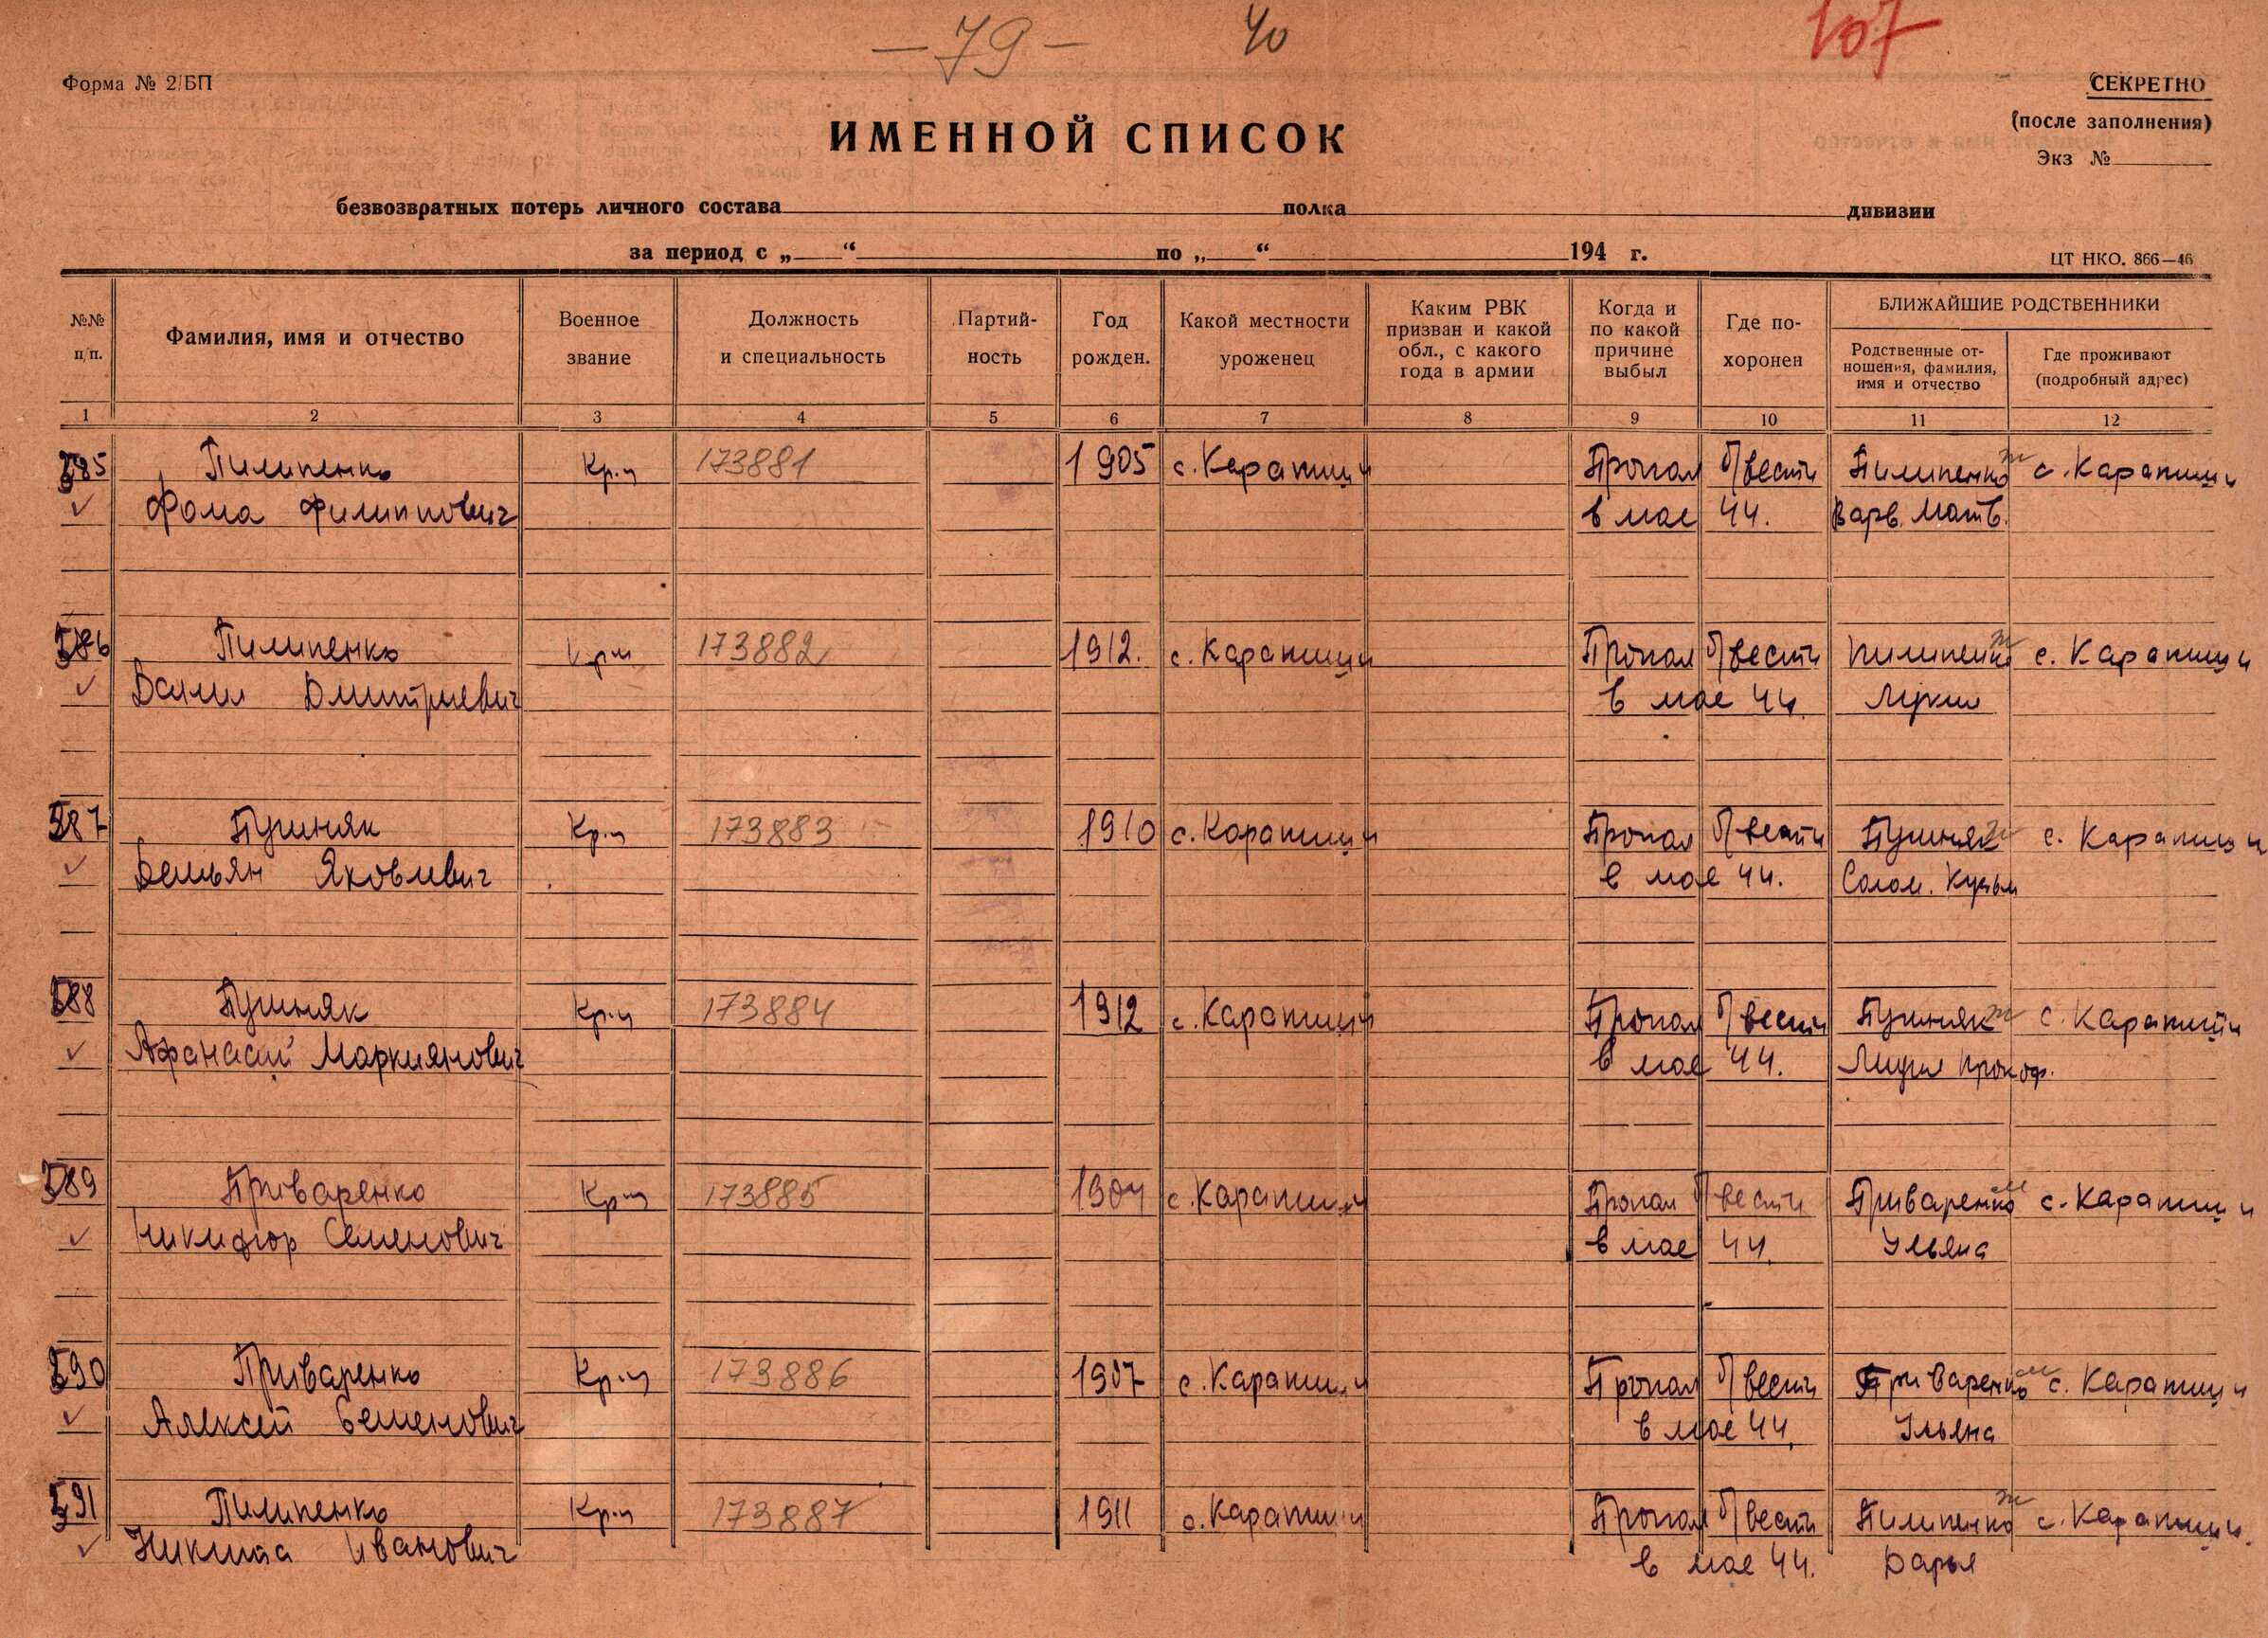 — 79 — 40 107
Форма № 2/БП
СЕКРЕТНО
(после заполнения)
Экз №
ИМЕННОЙ СПИСОК
безвозвратных потерь личного состава полка дивизии
за период с „ “ по „ “ 194 г.
ЦТ НКО. 866—46
№№ п/п.
Фамилия, имя и отчество
Военное звание
Должность и специальность
Партий- ность
Год рожден.
Какой местности уроженец
Каким РВК призван и какой обл., с какого года в армии
Когда и по какой причине выбыл
Где по- хоронен
БЛИЖАЙШИЕ РОДСТВЕННИКИ
Родственные от- ношения, фамилия, имя и отчество
Где проживают (подробный адрес)
1 2 3 4 5 6 7 8 9 10 11 12
585 Пилипенко Кр-ц 173881 1905 с. Карапиши Пропал б/вести Пилипенко ж с. Карапиши
Фома Филиппович в мае 44. Варв. Матв.
586 Пилипенко Кр-ц 173882 1912. с. Карапиши Пропал б/вести Пилипенко ж с. Карапиши
Данил Дмитриевич в мае 44.
587 Пушняк Кр-ц 173883 1910 с. Карапиши Пропал б/вести Пушняк ж с. Карапиши
Демьян Яковлевич в мае 44. Солом. Кузьм
588 Пушняк Кр-ц 173884 1912 с. Карапиши Пропал б/вести Пушняк ж с. Карапиши
Афанасий Маркиянович в мае 44. Лидия Прокоф.
589 Приваренко Кр-ц 173885 с. Карапиши Пропал б/вести Приваренко м с. Карапиши
Никифор Семенович в мае 44. Ульяна
590 Приваренко Кр-ц 173886 1907 с. Карапиши Пропал б/вести Приваренко м с. Карапиши
Алексей Семенович в мае 44. Ульяна
591 Пилипенко Кр-ц 173887 1911 с. Карапиши Пропал б/вести Пилипенко ж с. Карапиши.
Никита Иванович в мае 44. Дарья